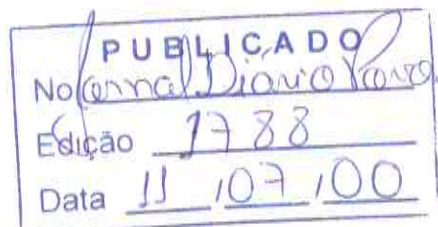 PUBLICADO
No Jornal Diário Povo
Edição 1788
Data 11/07/00